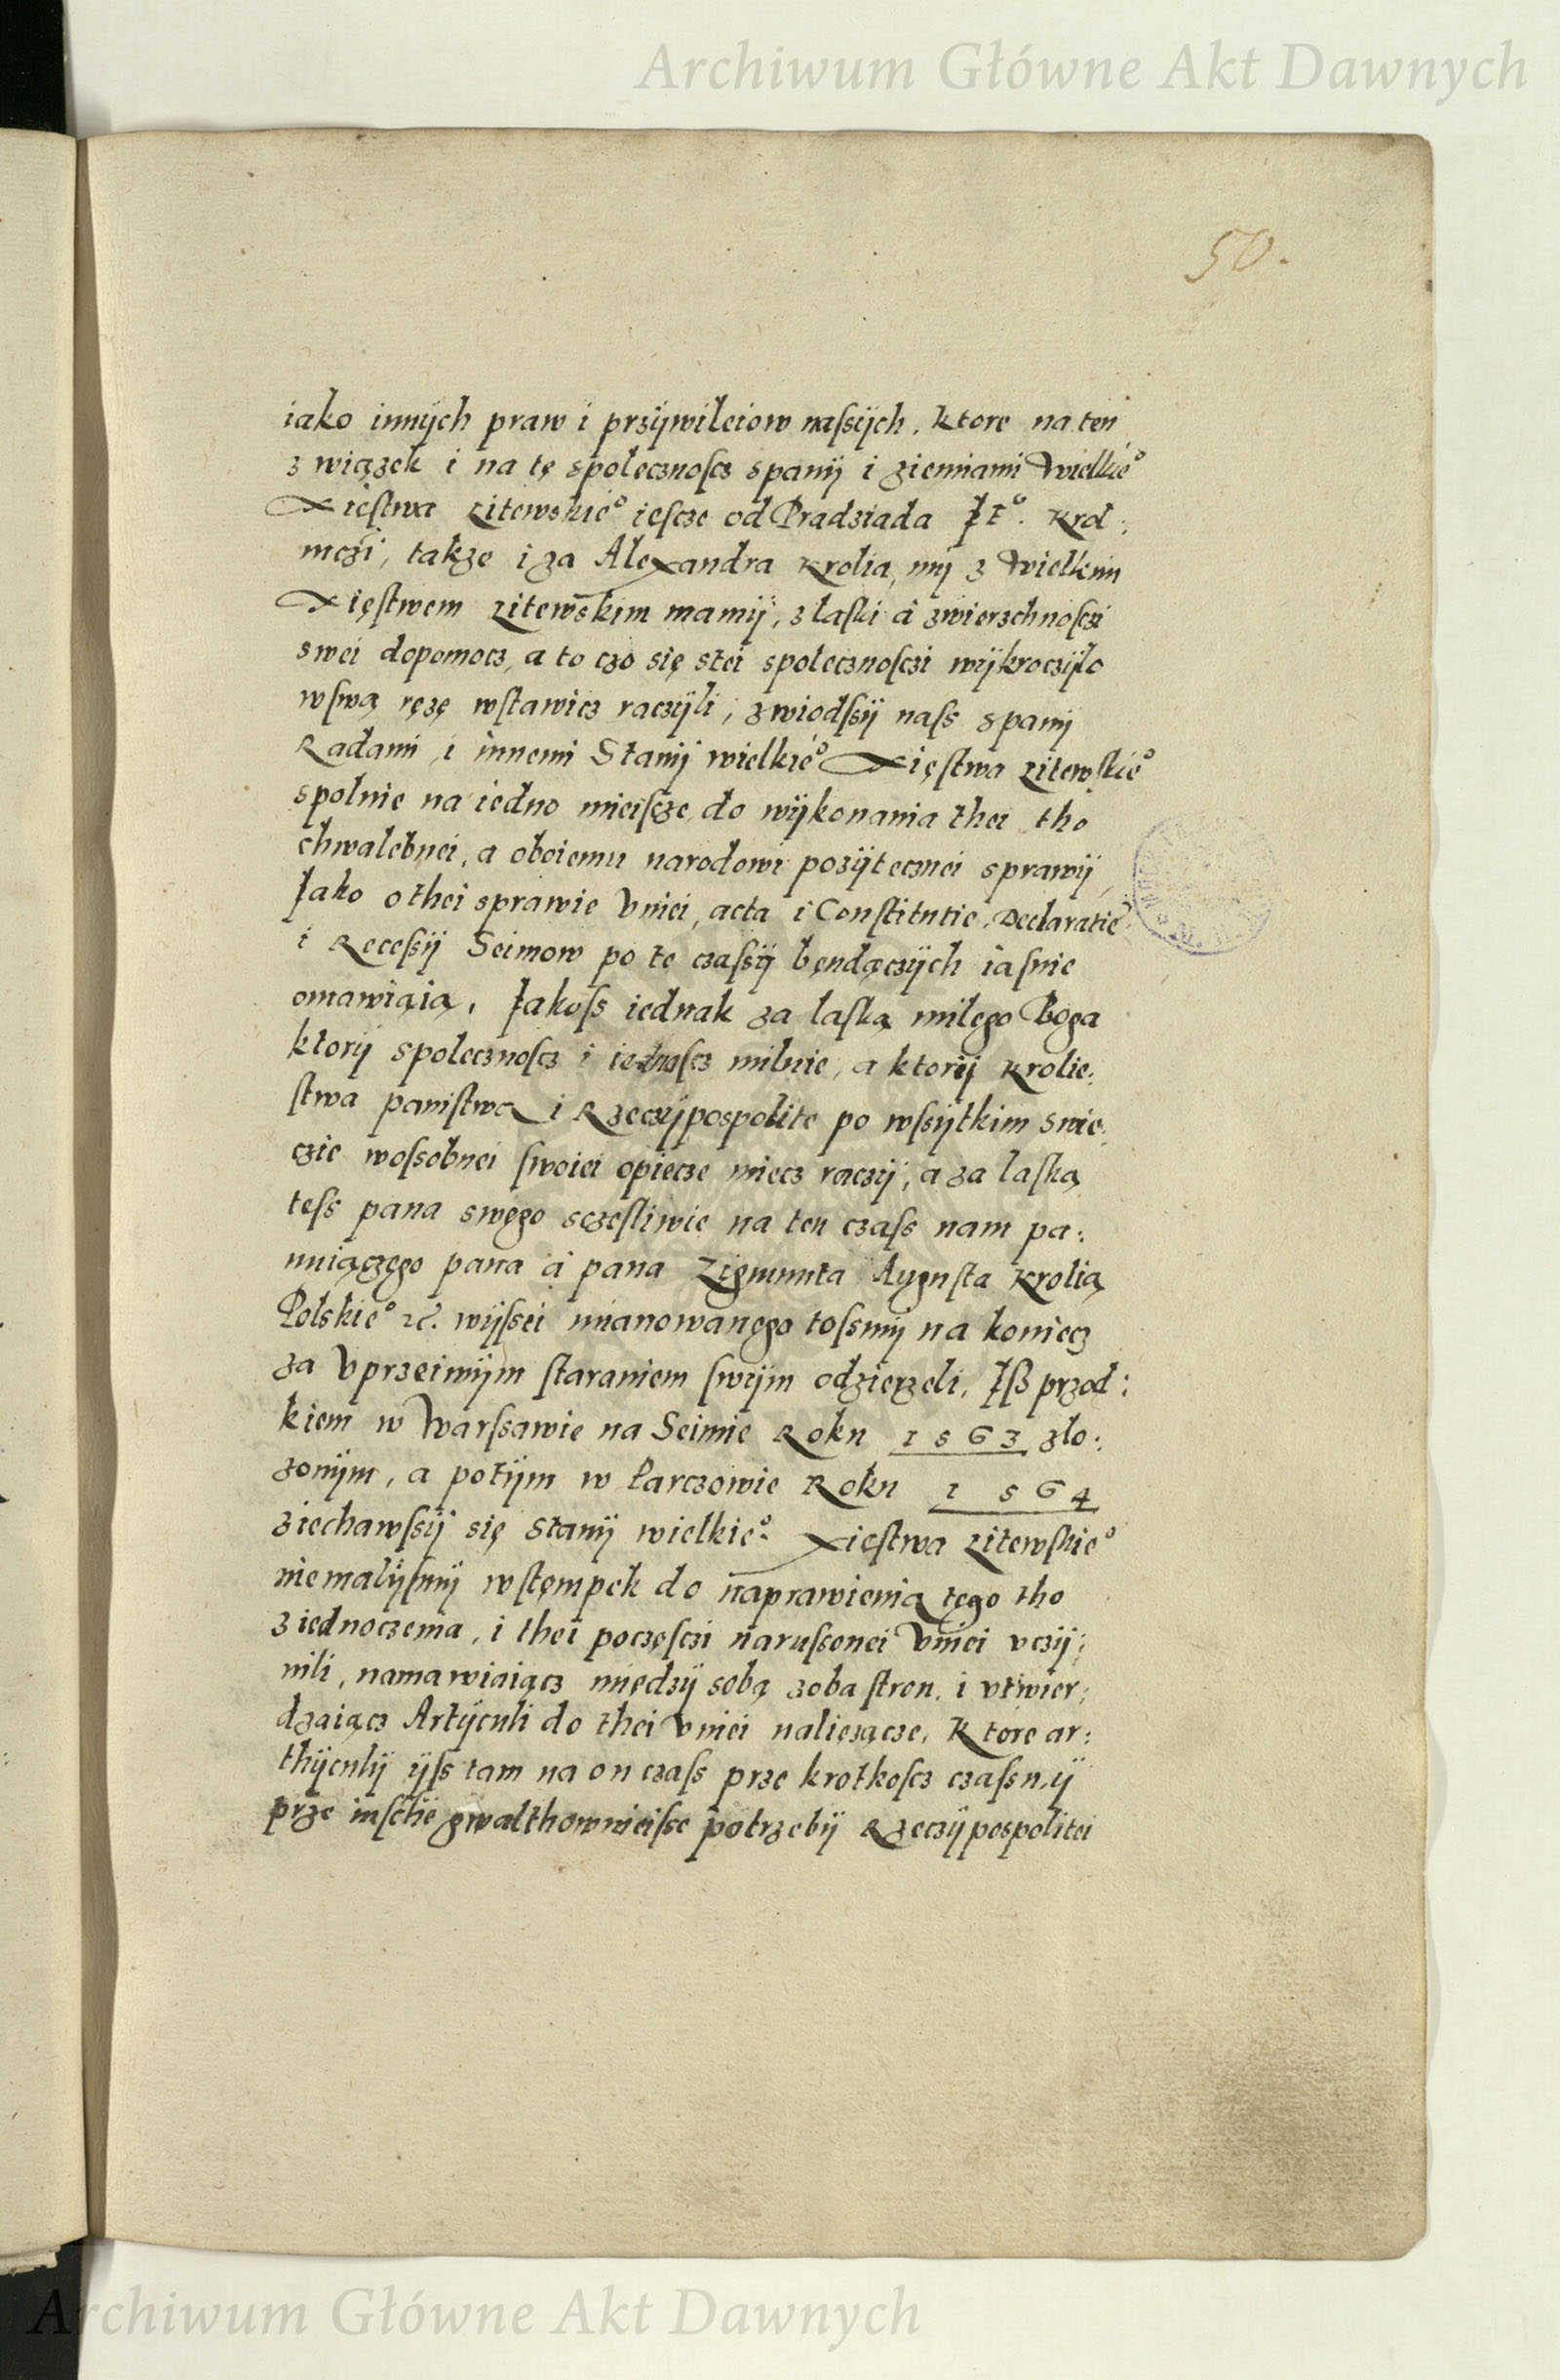 Archiwum Główne Akt Dawnych
50.
iako innÿch praw i przÿwileiow naſsÿch, ktore na ten
związek i na tę społecznoſcz spanÿ i ziemiami Wielkie°
Xięſtwa Litewskie° ieſcze od Pradziada J° Krol:
mczi, takze i za Alexandra Krolia, mÿ z Wielkim
Xięſtwem Litewskim mamÿ, złaſki á zwierzchnoſczi
swei dopomocz, a to czo się stei społecznoſczi wÿkroczÿło
wſwą ręzę wſtawicz raczÿli, zwiodſsÿ naſs spanÿ
Radami, i innemi Stanÿ wielkie° Xięſtwa Litewſkie°
spolnie na iedno mieiſcze, do wÿkonania thei tho
chwalebnei, a oboiemu narodowi pozÿtecznei sprawÿ,
Jako othei sprawie Vniei, acta i Conſtitutie, Declaratie
i Receſsÿ Seimow po te czaſsÿ bęndączÿch iaſnie
omawiąią, Jakoſs iednak za łaſką miłego Boga
ktorÿ społecznoſcz i iednoſcz miłuie, a ktorÿ Krolie:
ſtwa paniſtwa i Rzeczÿpospolite po wſsÿtkim Swie:
czie woſsobnei ſwoiei opiecze miecz raczÿ, a za łaſką
teſs pana swęgo sczeſliwie na ten czaſs nam pa:
nuiączęgo pana á pana Zigmunta Augusta Krolią
Polskie° &c. wÿſsei mianowanęgo toſsmÿ na koniecz
za Vprzeimÿm ſtaraniem ſwÿm odzierzeli, Jſß przod:
kiem w Warſsawie na Seimie Roku 1563 zło:
zonÿm, a potÿm w Parczowie Roku 1564
ziechawſsÿ się Stanÿ wielkie° Xięſtwa Litewſkie°
niemałÿſmÿ wſtęmpek do naprawienia tęgo tho
ziednoczenia, i thei poczęſczi naruſsonei Vniei vczÿ:
nili, namawiaiącz międzÿ sobą zoba ſtron, i vtwier:
dzaiącz Artÿculi do thei Vniei naliezącze, Ktore ar:
thÿculÿ ÿſs tam na on czaſs prze krotkoſcz czaſsu, ÿ
prze inſche gwałthownieiſse potrzebÿ Rzeczÿpospolitei
Archiwum Główne Akt Dawnych